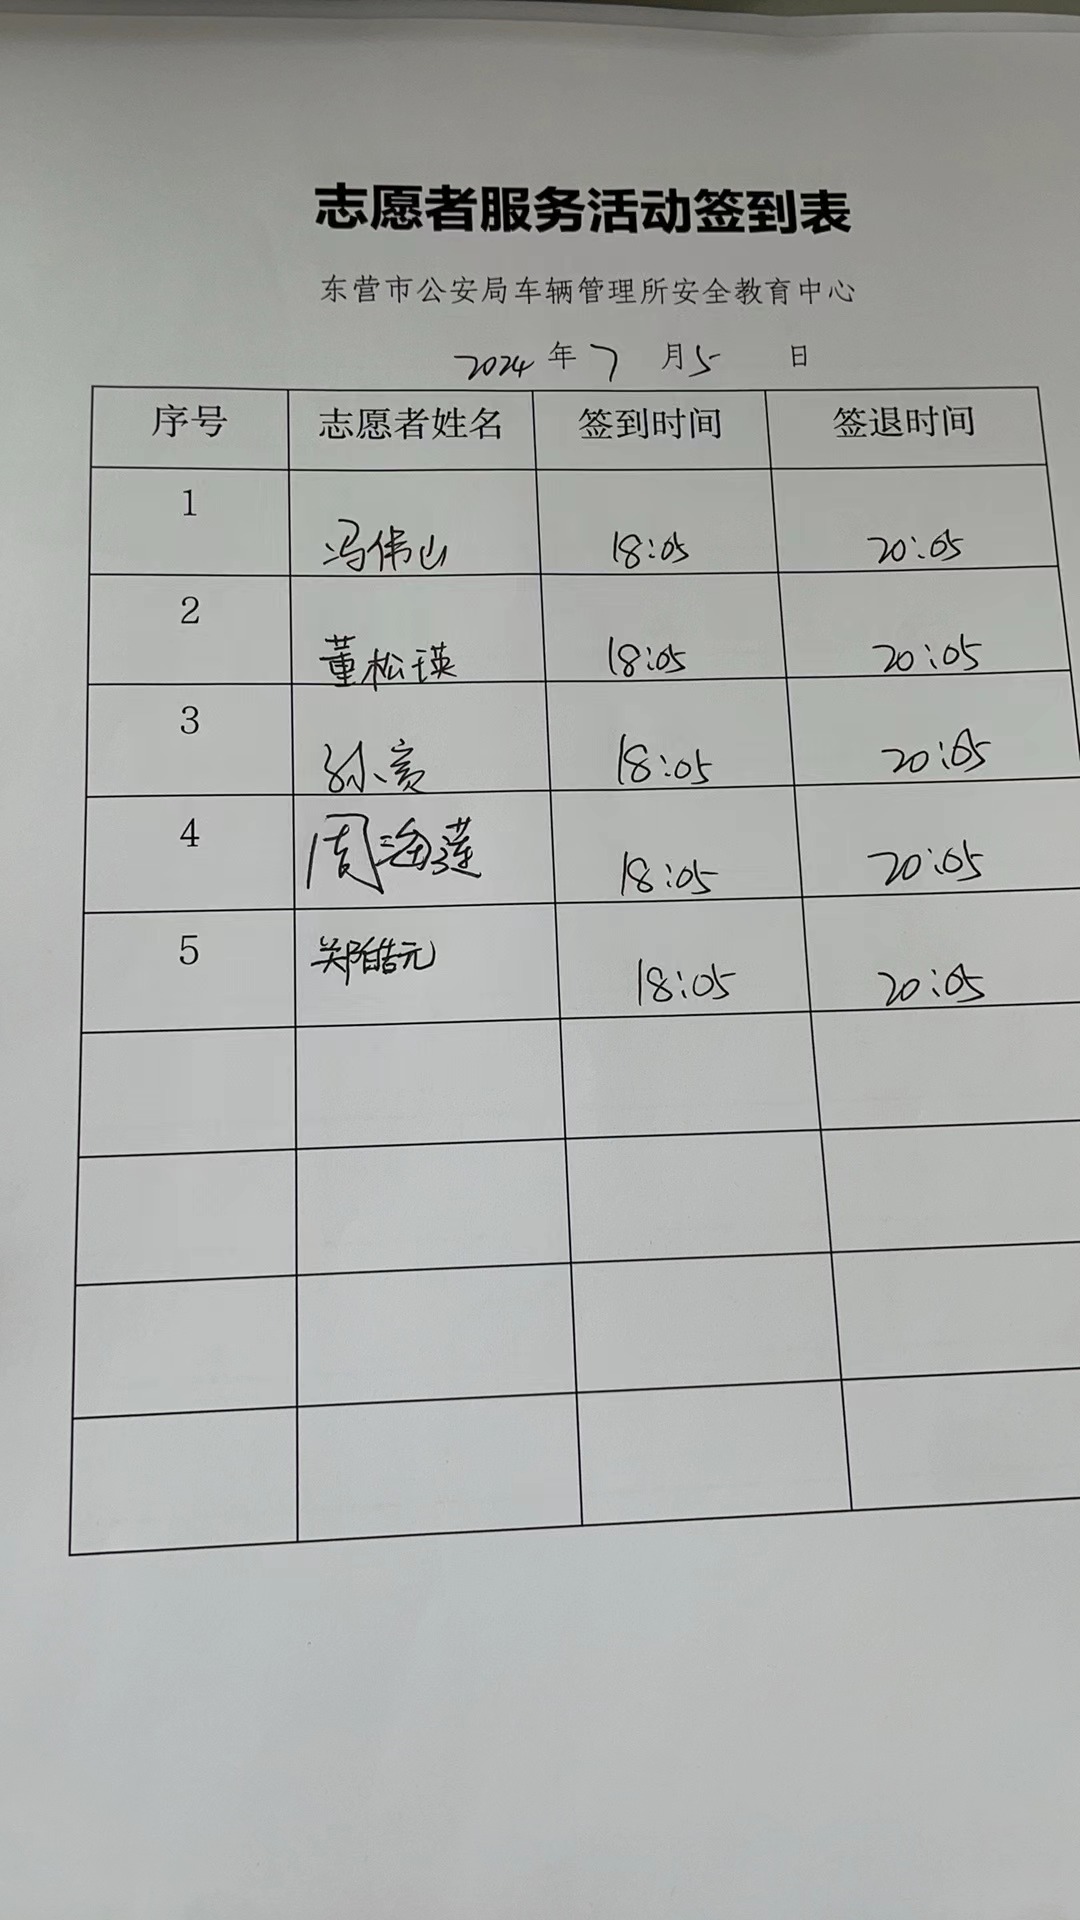 志愿者服务活动签到表
东营市公安局车辆管理所安全教育中心
2024 年 7 月 5 日
序号 志愿者姓名 签到时间 签退时间
1 冯伟山 18:05 20:05
2 董松瑛 18:05 20:05
3 孙宾 18:05 20:05
4 周海莲 18:05 20:05
5 郑皓元 18:05 20:05